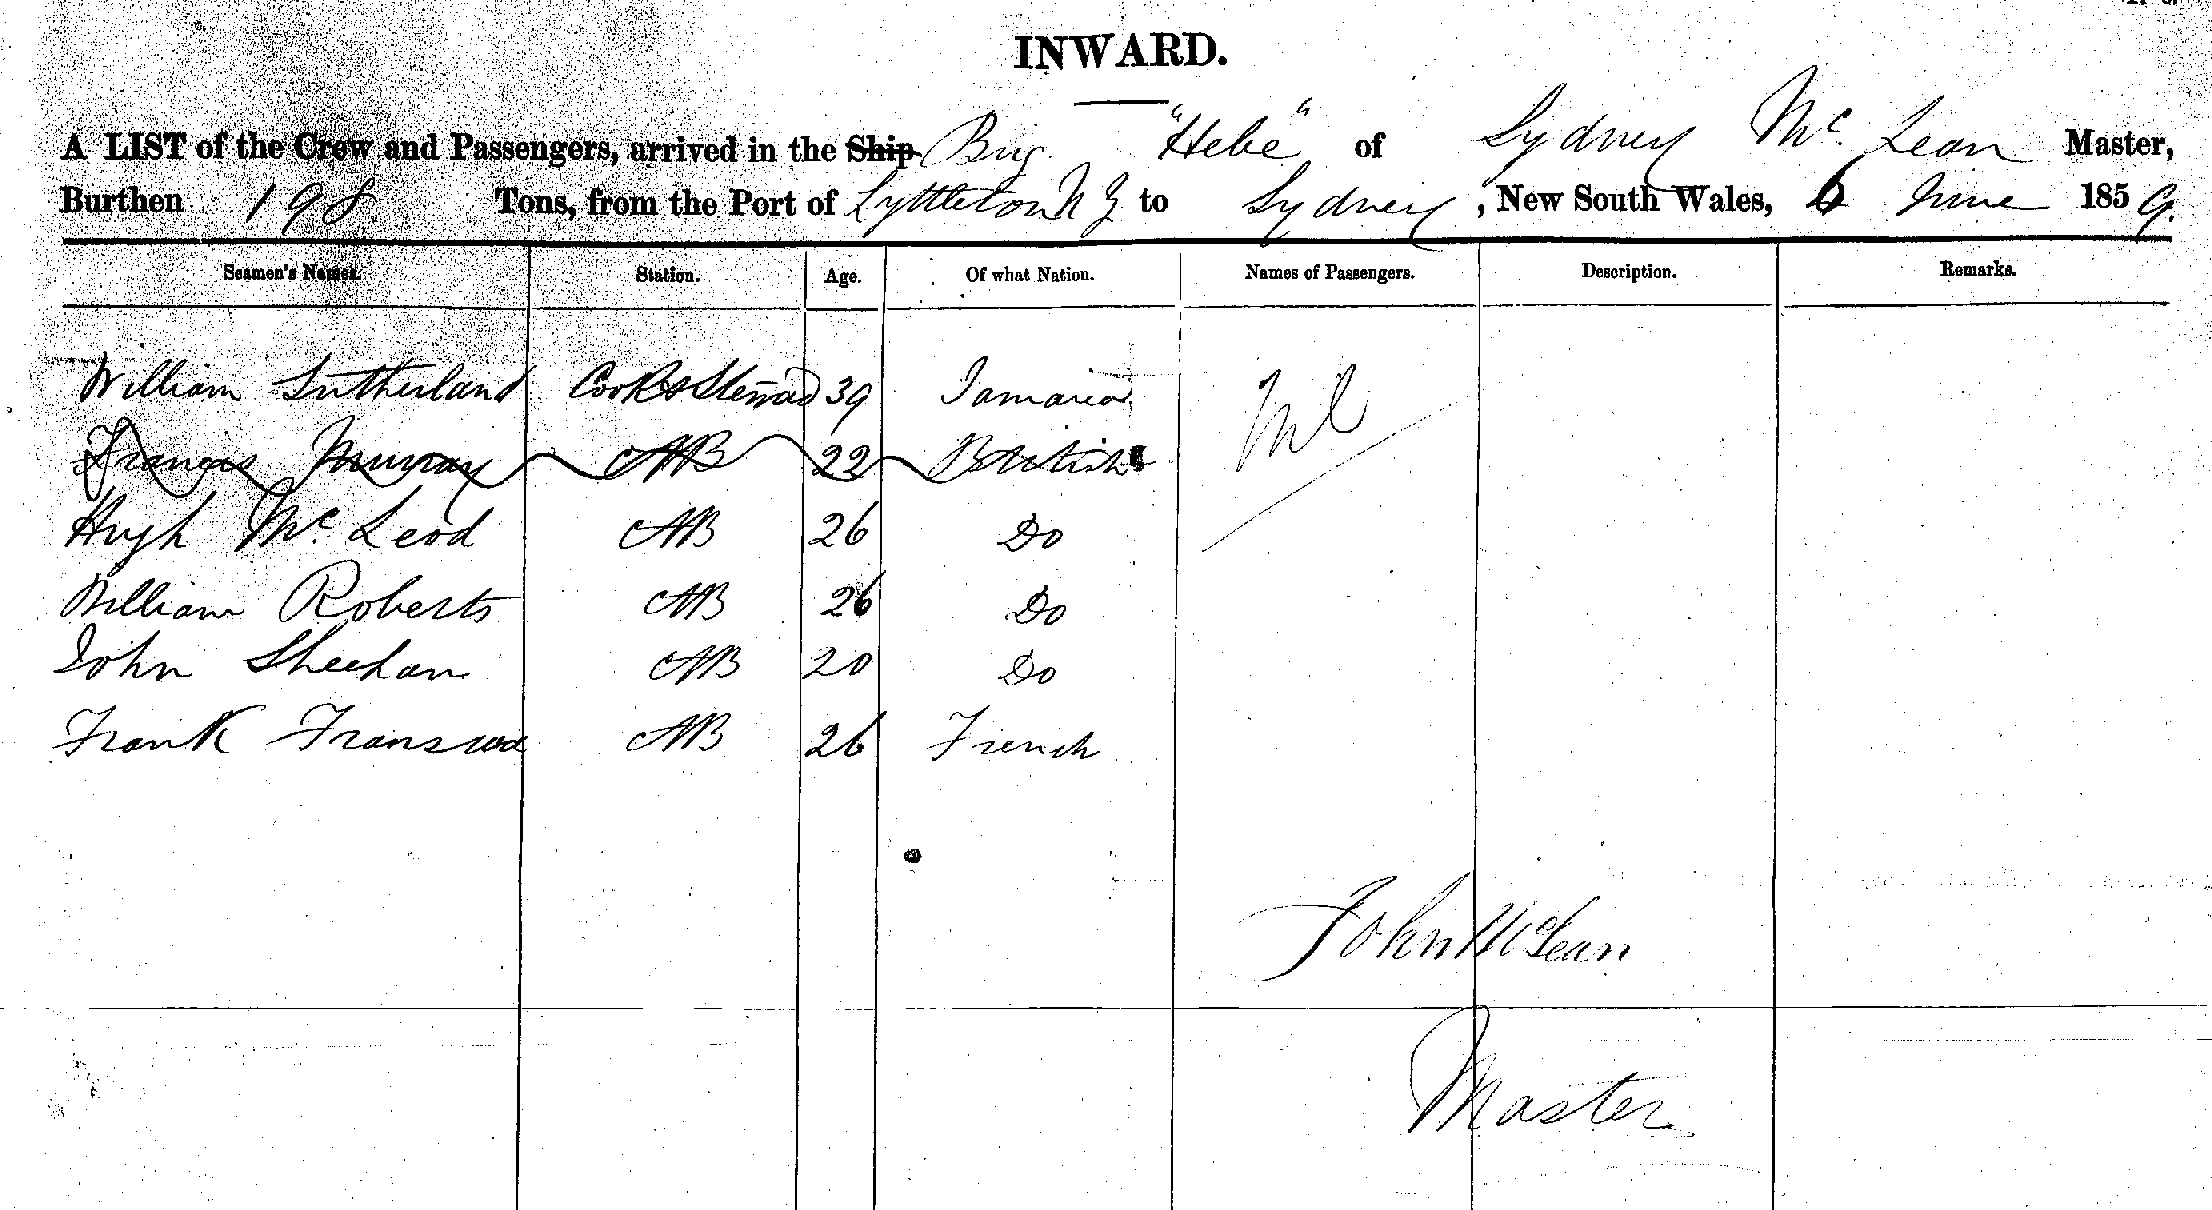 INWARD.
A LIST of the Crew and Passengers, arrived in the Ship Brig "Hebe" of Sydney Mc Lean Master,
Burthen 198 Tons, from the Port of Lyttleton N Z to Sydney, New South Wales, 6 June 1859.
Seamen's Names. Station. Age. Of what Nation. Names of Passengers. Description. Remarks.
William Sutherland Cook & Steward 39 Jamaica Nil
Francis Murray AB 22 British
Hugh Mc Leod AB 26 Do
William Roberts AB 26 Do
John Sheehan AB 20 Do
Frank AB 26 French
John McLean
Master